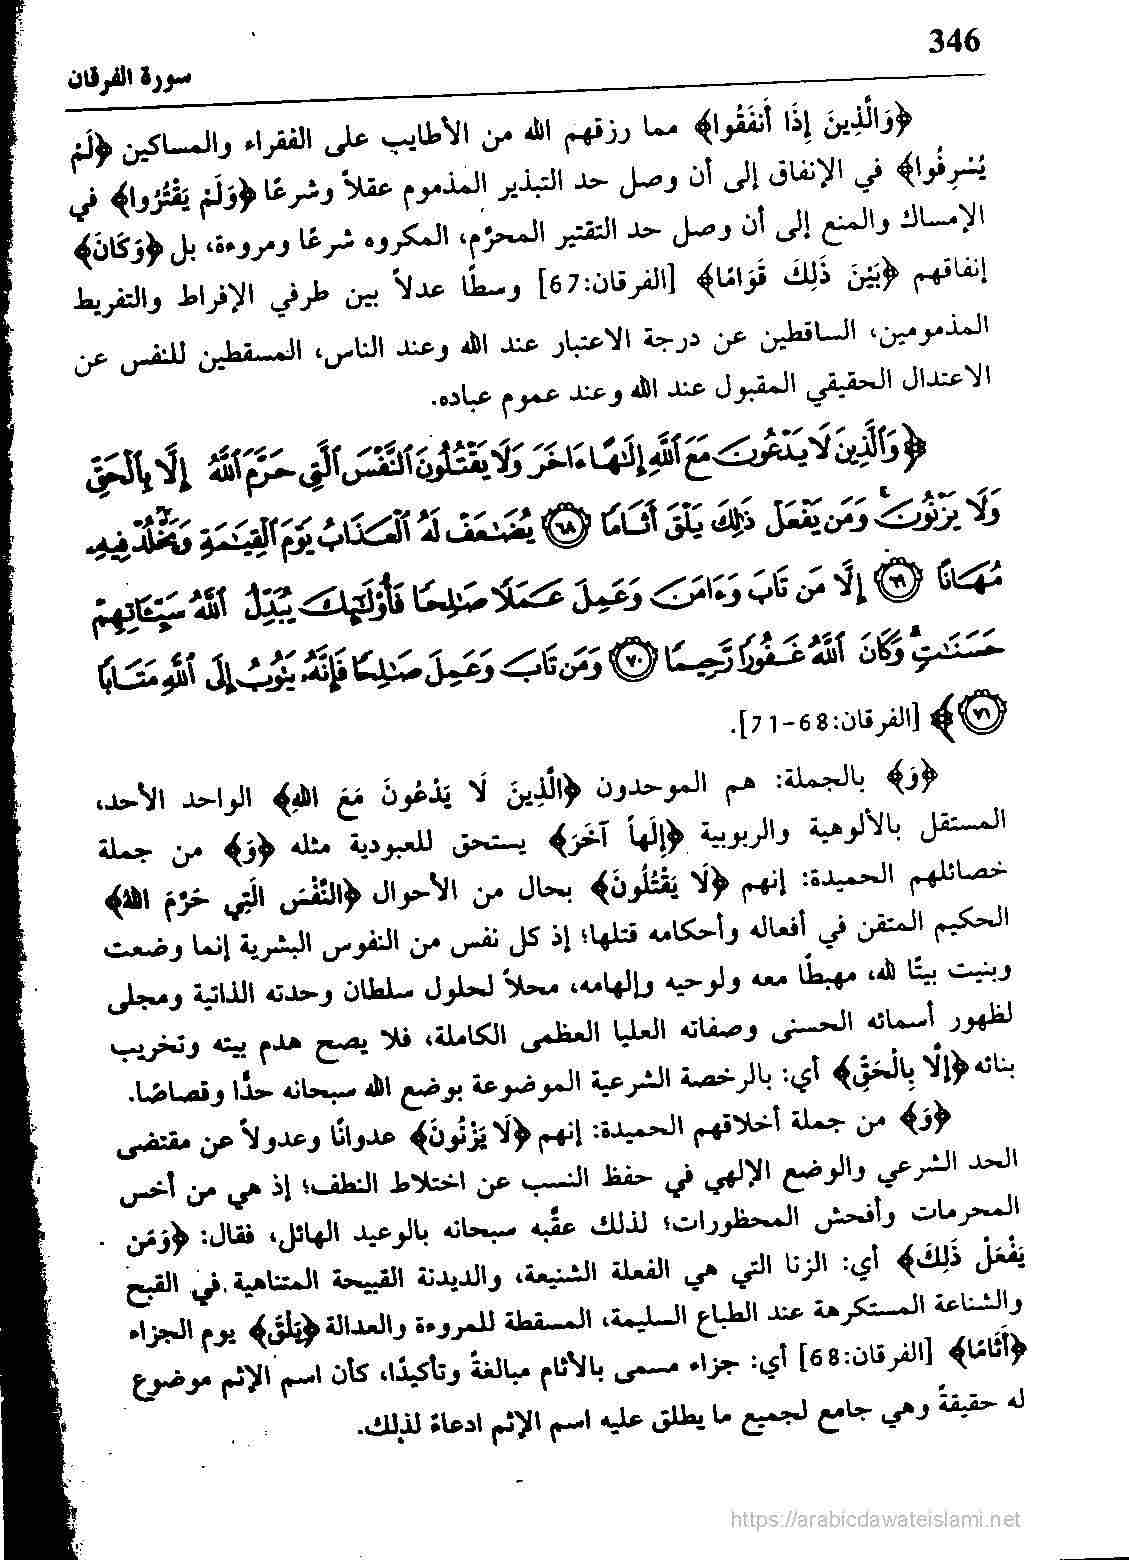 346
سورة الفرقان
﴿وَالَّذِينَ إِذَا أَنفَقُوا﴾ مما رزقهم الله من الأطايب على الفقراء والمساكين ﴿لَمْ
يُسْرِفُوا﴾ في الإنفاق إلى أن وصل حد التبذير المذموم عقلاً وشرعًا ﴿وَلَمْ يَقْتُرُوا﴾ في
الإمساك والمنع إلى أن وصل حد التقتير المحرَّم، المكروه شرعًا ومروءة، بل ﴿وَكَانَ﴾
إنفاقهم ﴿بَيْنَ ذَلِكَ قَوَامًا﴾ [الفرقان:67] وسطًا عدلاً بين طرفي الإفراط والتفريط
المذمومين، الساقطين عن درجة الاعتبار عند الله وعند الناس، المسقطين للنفس عن
الاعتدال الحقيقي المقبول عند الله وعند عموم عباده.
﴿وَٱلَّذِينَ لَا يَدْعُونَ مَعَ ٱللَّهِ إِلَٰهًا ءَاخَرَ وَلَا يَقْتُلُونَ ٱلنَّفْسَ ٱلَّتِي حَرَّمَ ٱللَّهُ إِلَّا بِٱلْحَقِّ
وَلَا يَزْنُونَ ۚ وَمَن يَفْعَلْ ذَٰلِكَ يَلْقَ أَثَامًا ٦٨ يُضَٰعَفْ لَهُ ٱلْعَذَابُ يَوْمَ ٱلْقِيَٰمَةِ وَيَخْلُدْ فِيهِۦ
مُهَانًا ٦٩ إِلَّا مَن تَابَ وَءَامَنَ وَعَمِلَ عَمَلًا صَٰلِحًا فَأُو۟لَٰٓئِكَ يُبَدِّلُ ٱللَّهُ سَيِّـَٔاتِهِمْ
حَسَنَٰتٍ ۗ وَكَانَ ٱللَّهُ غَفُورًا رَّحِيمًا ٧٠ وَمَن تَابَ وَعَمِلَ صَٰلِحًا فَإِنَّهُۥ يَتُوبُ إِلَى ٱللَّهِ مَتَابًا
٧١﴾ [الفرقان:68-71].
﴿وَ﴾ بالجملة: هم الموحدون ﴿الَّذِينَ لَا يَدْعُونَ مَعَ اللهِ﴾ الواحد الأحد،
المستقل بالألوهية والربوبية ﴿إِلَهاً آخَرَ﴾ يستحق للعبودية مثله ﴿وَ﴾ من جملة
خصائلهم الحميدة: إنهم ﴿لَا يَقْتُلُونَ﴾ بحال من الأحوال ﴿النَّفْسَ الَتِي حَرَّمَ اللهُ﴾
الحكيم المتقن في أفعاله وأحكامه قتلها؛ إذ كل نفس من النفوس البشرية إنما وضعت
وبنيت بيتًا لله، مهبطًا معه ولوحيه وإلهامه، محلاً لحلول سلطان وحدته الذاتية ومجلى
لظهور أسمائه الحسنى وصفاته العليا العظمى الكاملة، فلا يصح هدم بيته وتخريب
بنائه ﴿إِلَّا بِالْحَقِّ﴾ أي: بالرخصة الشرعية الموضوعة بوضع الله سبحانه حدًّا وقصاصًا.
﴿وَ﴾ من جملة أخلاقهم الحميدة: إنهم ﴿لَا يَزْنُونَ﴾ عدوانًا وعدولاً عن مقتضى
الحد الشرعي والوضع الإلهي في حفظ النسب عن اختلاط النطف؛ إذ هي من أخس
المحرمات وأفحش المحظورات؛ لذلك عقَّبه سبحانه بالوعيد الهائل، فقال: ﴿وَمَن
يَفْعَلْ ذَلِكَ﴾ أي: الزنا التي هي الفعلة الشنيعة، والديدنة القبيحة المتناهية في القبح
والشناعة المستكرهة عند الطباع السليمة، المسقطة للمروءة والعدالة ﴿يَلْقَ﴾ يوم الجزاء
﴿أَثَامًا﴾ [الفرقان:68] أي: جزاء مسمى بالأثام مبالغةً وتأكيدًا، كأن اسم الإثم موضوع
له حقيقةً وهي جامع لجميع ما يطلق عليه اسم الإثم ادعاءً لذلك.
https://arabicdawateislami.net